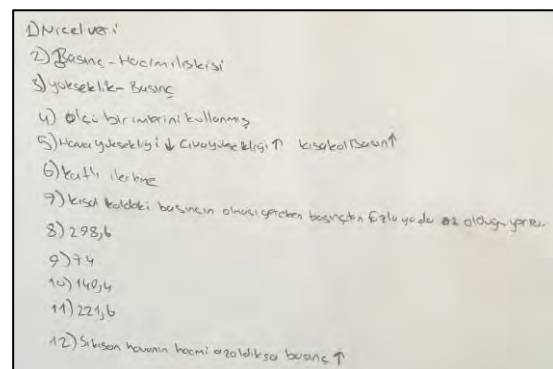 1) Nicel veri
2) Basınç - Hacim ilişkisi
3) yükseklik - Basınç
4) ölçü birimlerini kullanmış
5) Hava yüksekliği ↓ Civa yüksekliği ↑ kısa kol Basınç ↑
6) katlı ilerleme
7) kısa koldaki basıncın olması gereken basınçtan fazla yada az olduğu yorumu
8) 298,6
9) 74
10) 140,4
11) 221,6
12) Sıkışan havanın hacmi azaldıkça basınç ↑